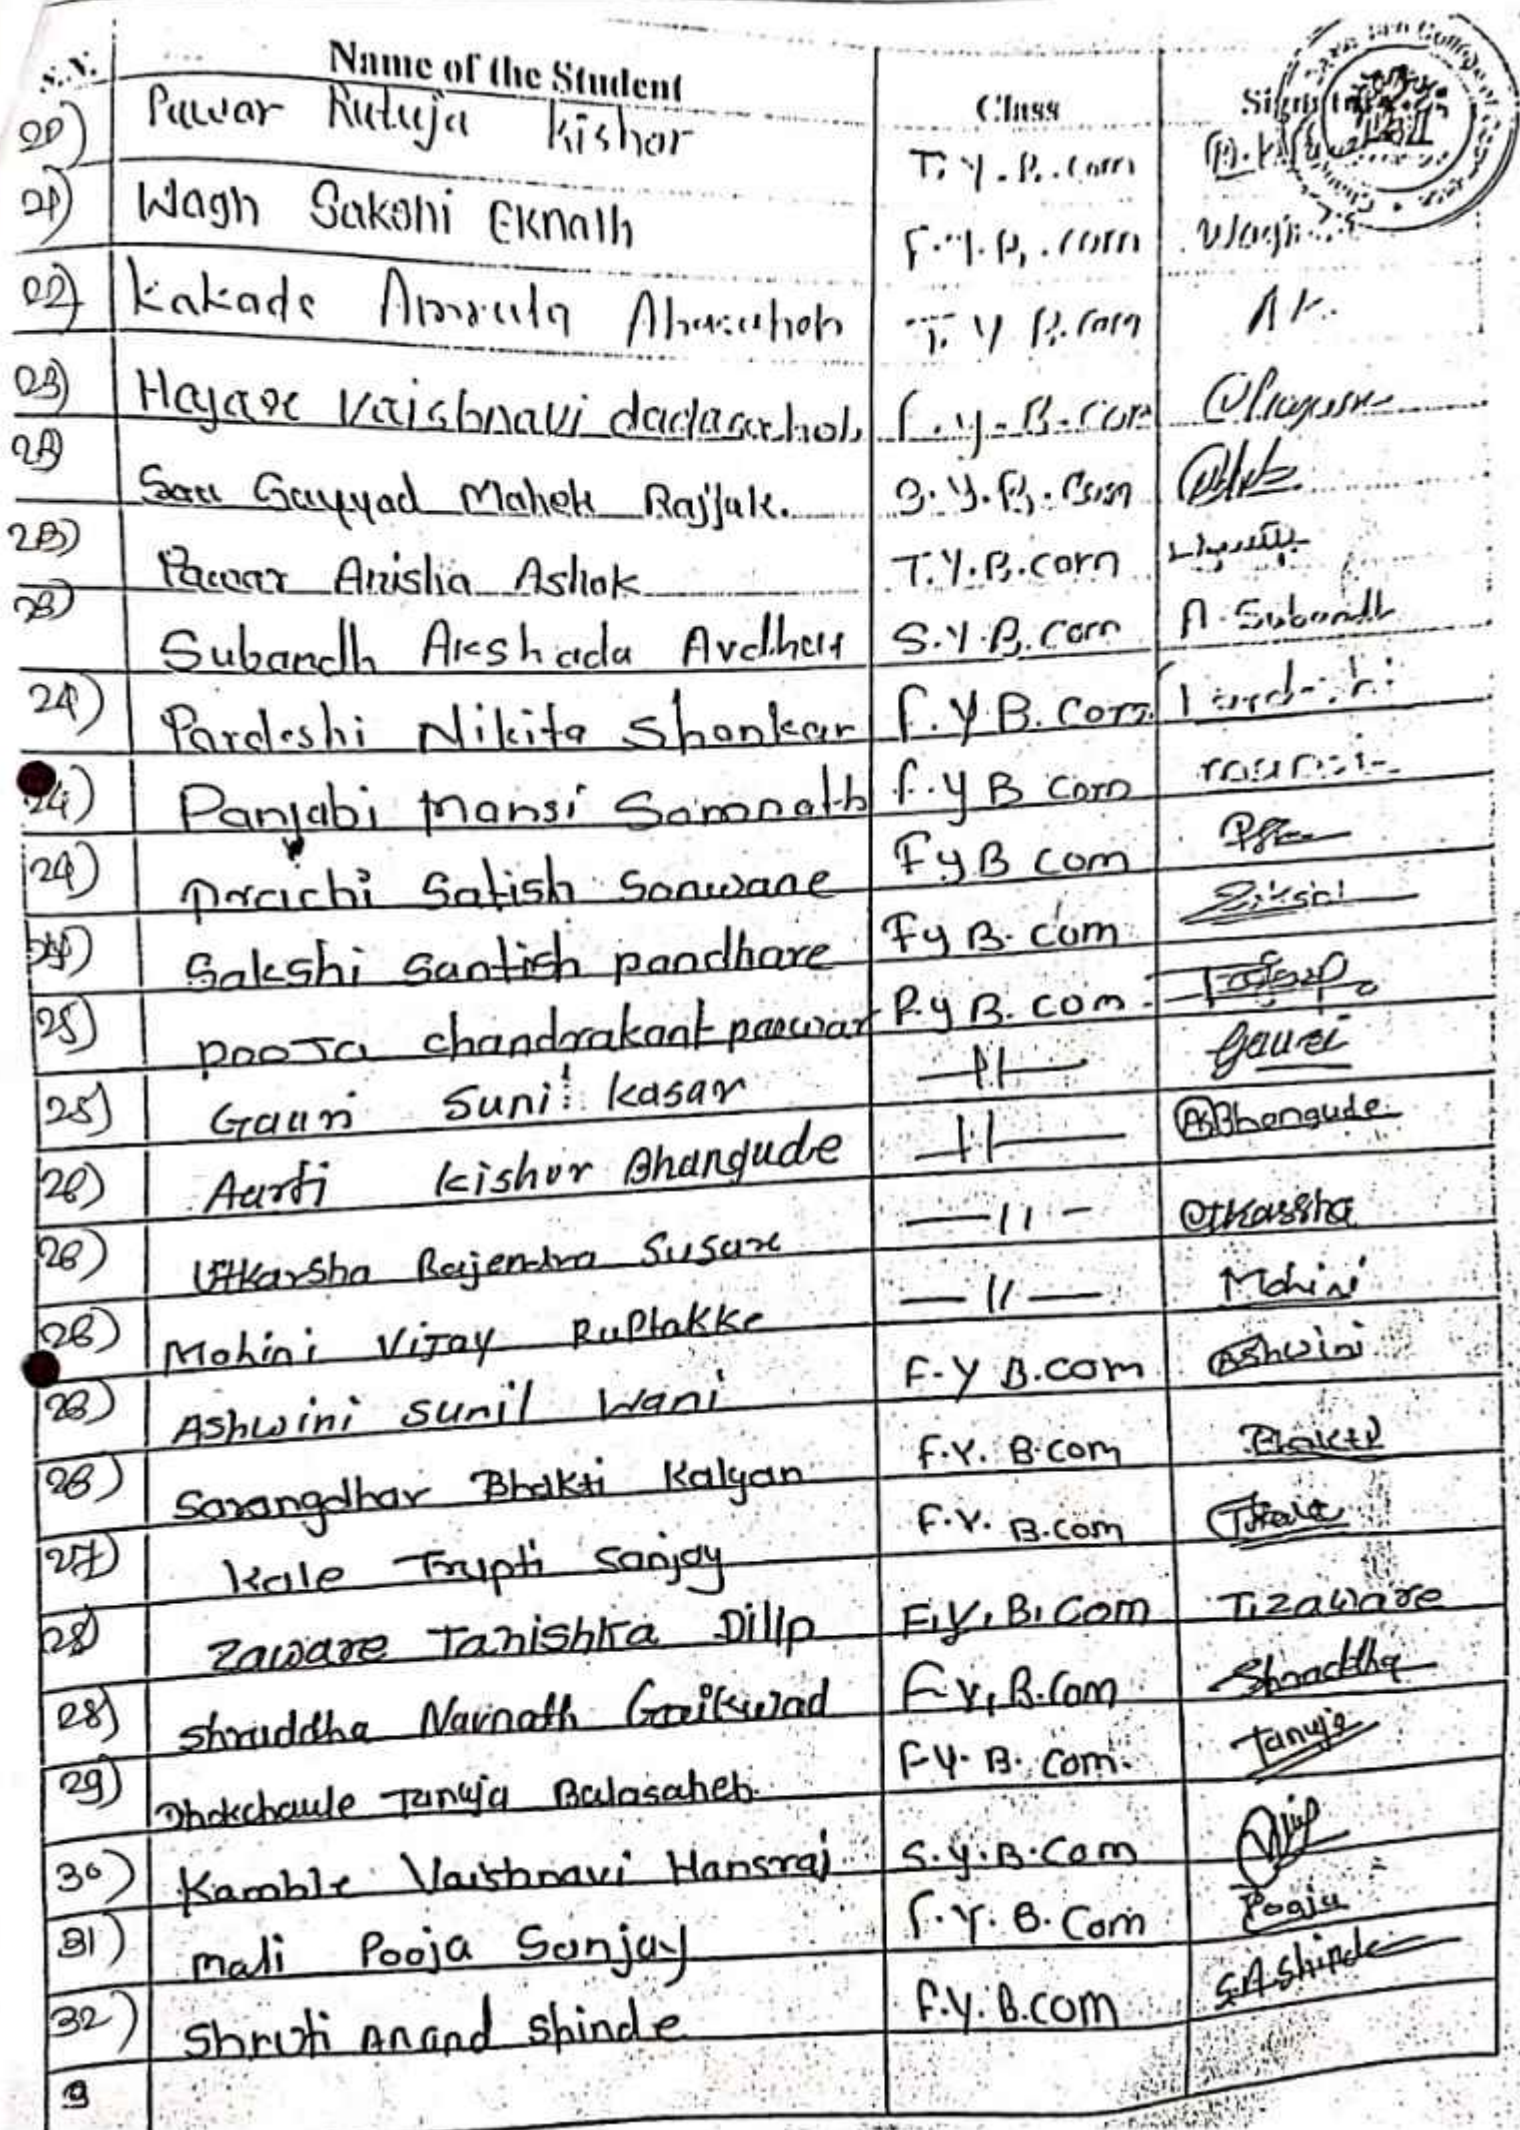 S.N. Name of the Student Class Signature
20) Pawar Rutuja Kishor T.Y.B.com
21) Wagh Sakshi Eknath F.Y.B.com Wagh
22) Kakade Amruta T.Y B.com AK.
23) Hajare Vaishnavi dadasaheb F.y.B.com
Sayyad Mahek Rajjak. S.Y.B.Com
Pawar Anisha Ashok T.Y.B.com
Subandh Akshada Avdhut S.Y.B.com A. Subandh
24) Pardeshi Nikita Shankar F.Y B.Com
24) Panjabi Mansi Somnath F.y B com
24) Prachi Satish Sonwane FyB com
Sakshi Santish pandhare Fy B. com
25) Pooja chandrakant pawar F.y B. com.
25) Gauri Sunil kasar —11— Gauri
26) Aarti kishor Bhangude —11— ASBhangude
26) Utkarsha Rajendra Susare —11— Utkarsha
26) Mohini Vijay —11— Mohini
26) Ashwini sunil Wani F.Y B.com Ashwini
26) Sarangdhar Bhakti Kalyan F.Y. B.com Bhakti
27) Kale Trupti Sanjay F.Y. B.com Tkale
28) Zaware Tanishka Dilip F.Y.B.Com T.Zaware
28) Shraddha Navnath Gaikwad F.Y.B.Com Shraddha
29) Dhokchaule Tanuja Balasaheb F.Y.B. Com. Tanuja
30) Kamble Vaishnavi Hansraj S.y.B.Com
31) Mali Pooja Sanjay F.Y.B.Com Pooja
32) Shruti Anand Shinde F.Y.B.com S.A.Shinde
9